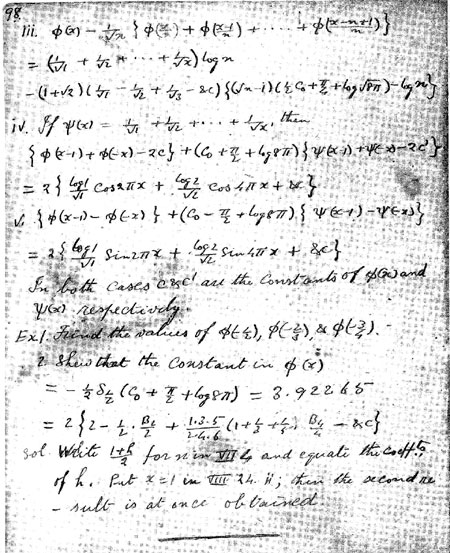 98.
iii. φ(x) − 1/√n {φ(x/n) + φ((x−1)/n) + ····· + φ((x−n+1)/n)}
= (1/√1 + 1/√2 + ···· + 1/√x) log n
− (1+√2)(1/√1 − 1/√2 + 1/√3 − &c){(√n−1)(½C₀ + π/4 + log√8π) − log n}
iv. If ψ(x) = 1/√1 + 1/√2 + ··· + 1/√x, then
{φ(x−1) + φ(−x) − 2c} + (C₀ + π/2 + log 8π){ψ(x−1) + ψ(−x) − 2c'}
= 2{log1/√1 Cos 2πx + log2/√2 cos 4πx + &c}
v. {φ(x−1) − φ(−x)} + (C₀ − π/2 + log 8π){ψ(x−1) − ψ(−x)}
= 2{log1/√1 Sin 2πx + log2/√2 Sin 4πx + &c}
In both cases c & c' are the Constants of φ(x) and
ψ(x) respectively.
Ex 1. Find the values of φ(−½), φ(−⅔), & φ(−¾).
2. Shew that the Constant in φ(x)
= −½ S½ (C₀ + π/2 + log 8π) = 3.92265
= 2{2 − ½. B₂/2 + 1.3.5/2.4.6 (1 + ⅓ + ⅕) B₄/4 − &c}
Sol. Write (1+h)/2 for n in VII 4 and equate the coeffts
of h. Put x = 1 in VIII 24. ii; then the second re
-sult is at once obtained.